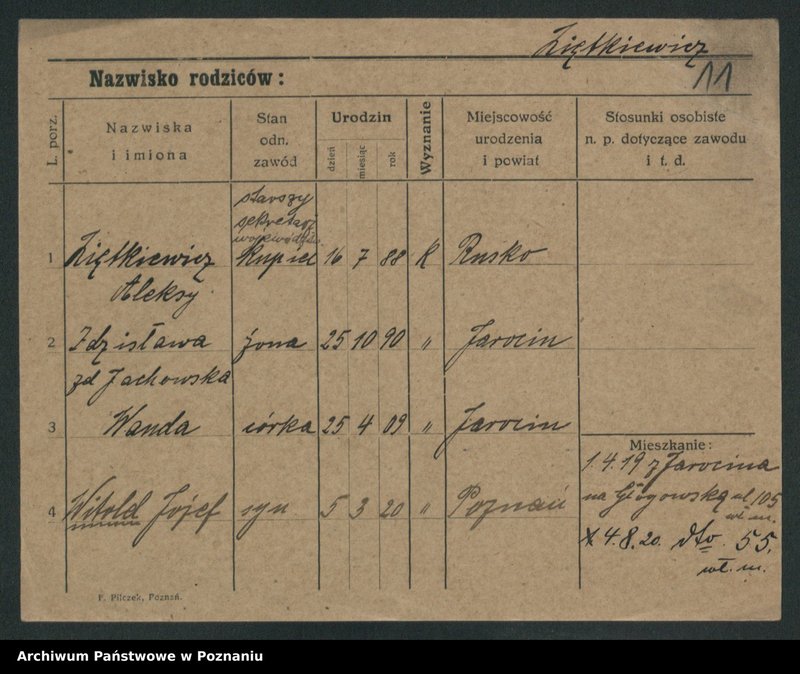 Ziętkiewicz
11
Nazwisko rodziców:
L. porz.
Nazwiska
i imiona
Stan
odn.
zawód
Urodzin
dzień
miesiąc
rok
Wyznanie
Miejscowość
urodzenia
i powiat
Stosunki osobiste
n. p. dotyczące zawodu
i t. d.
starszy
sekretarz
1 Ziętkiewicz kupiec 16 7 88 K Rusko
Aleksy
2 Zdzisława żona 25 10 90 " Jarocin
zd Jachowska
3 Wanda córka 25 4 09 " Jarocin
4 Witold Józef syn 5 3 20 " Poznań
Mieszkanie:
1.4.19 z Jarocina
na Głogowską ul 105
wł. m.
4.8.20. dto 55.
wł. m.
P. Pilczek, Poznań.
Archiwum Państwowe w Poznaniu